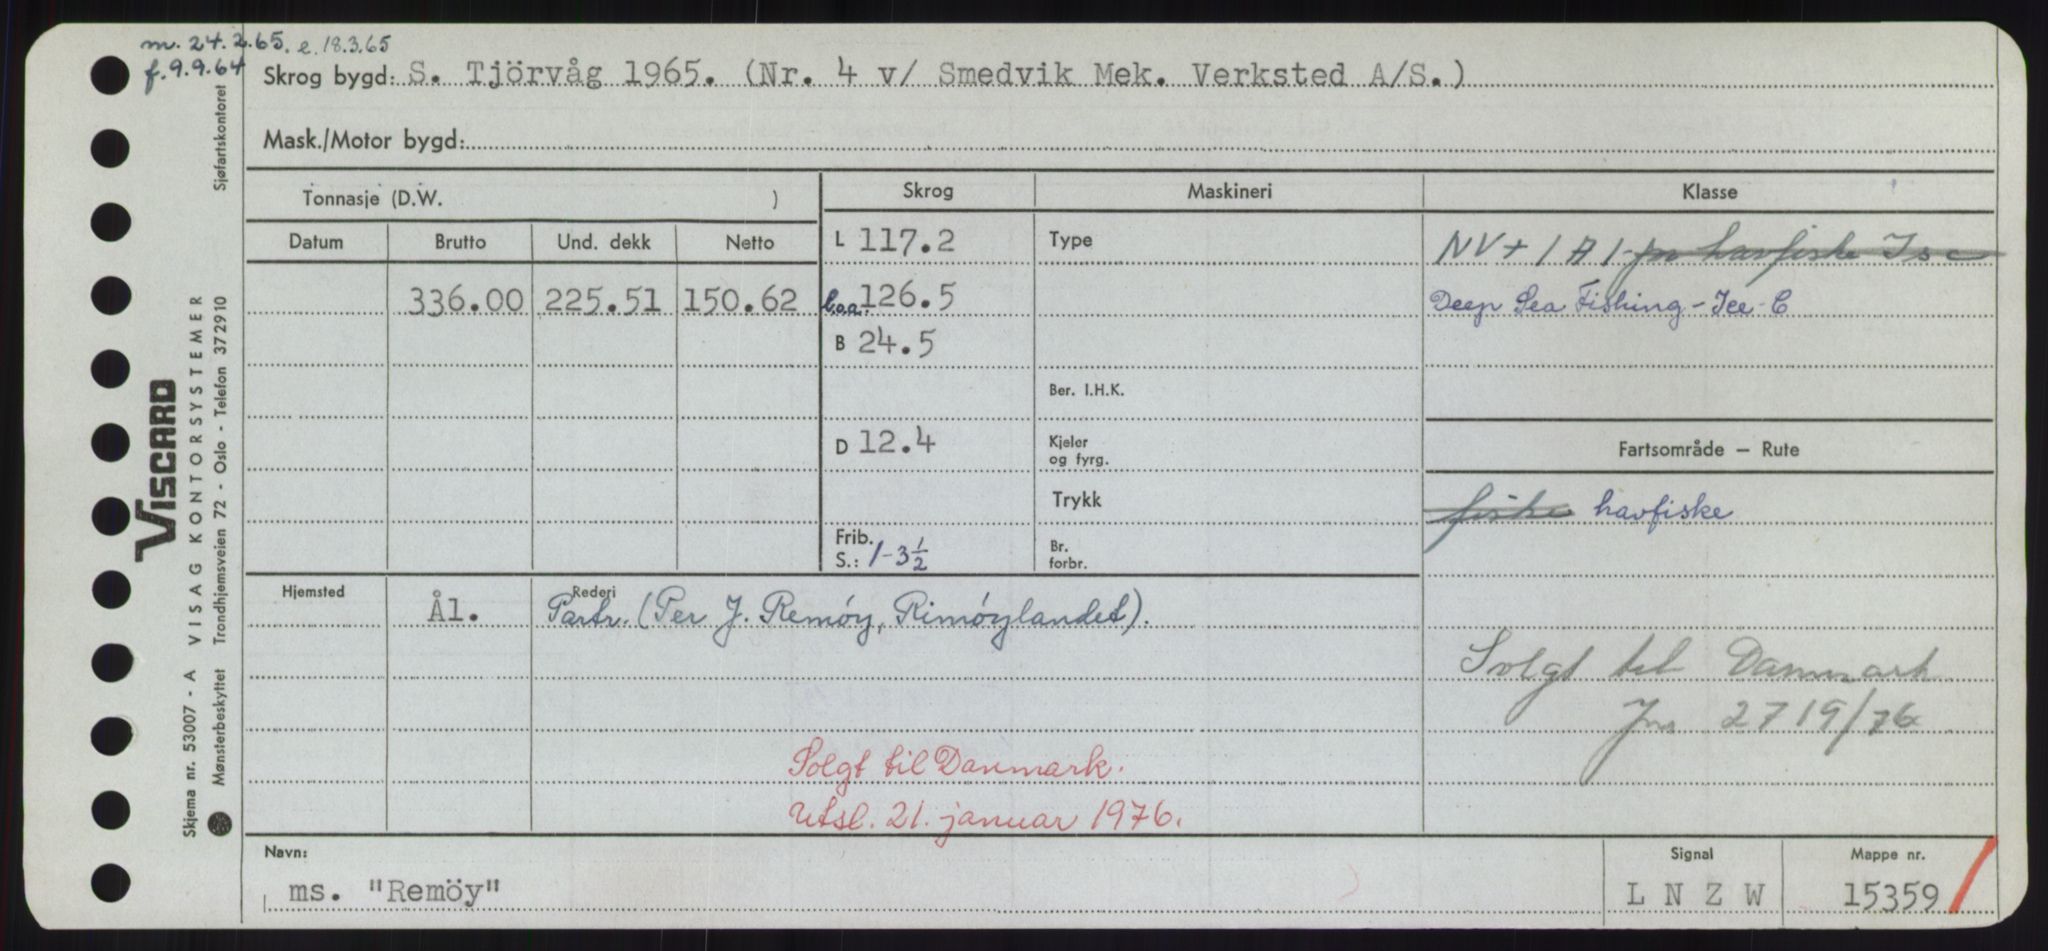 m. 24.2.65. e. 18.3.65
f. 9.9.64
Skrog bygd: S. Tjörvåg 1965. (Nr. 4 v/ Smedvik Mek. Verksted A/S.)
Mask./Motor bygd:
Tonnasje (D.W. )
Skrog
Maskineri
Klasse
Datum
Brutto
Und. dekk
Netto
L 117.2
Type
NV + 1 A 1 for havfiske Is c
336.00
225.51
150.62
L.o.a. 126.5
Deep Sea Fishing - Ice - C
B 24.5
Ber. I.H.K.
D 12.4
Kjeler
og fyrg.
Fartsområde — Rute
Trykk
fiske havfiske
Frib.
S.: 1-3½
Br.
forbr.
Hjemsted
Ål.
Rederi
Partr. (Per J. Remöy, Rimöylandet).
Solgt til Danmark
Jnr 2719/76
Solgt til Danmark.
Utsl. 21. januar 1976.
Navn:
ms. "Remöy"
Signal
L N Z W
Mappe nr.
15359
VISCARD
Skjema nr. 53007 - A VISAG KONTORSYSTEMER
Mønsterbeskyttet Trondhjemsveien 72 - Oslo - Telefon 372910 Sjøfartskontoret